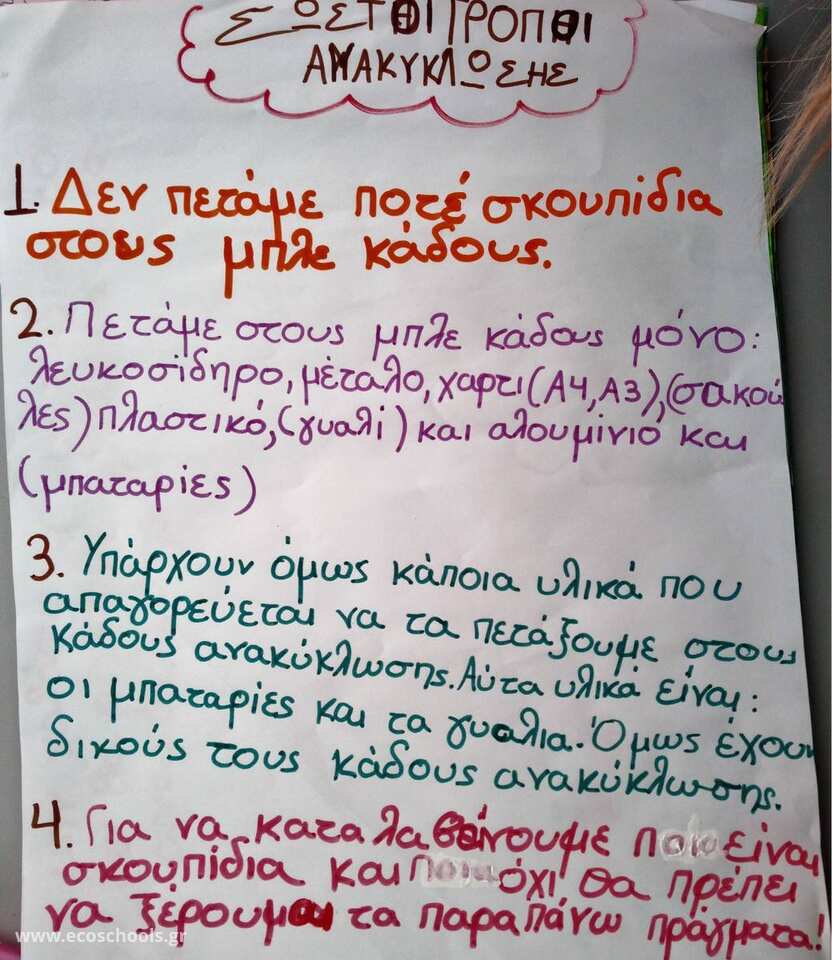 ΣΩΣΤΟΙ ΤΡΟΠΟΙ
ΑΝΑΚΥΚΛΩΣΗΣ
1. Δεν πετάμε ποτέ σκουπίδια
στους μπλε κάδους.
2. Πετάμε στους μπλε κάδους μόνο:
λευκοσίδηρο, μέταλο, χαρτι (Α4, Α3), (σακού
λες) πλαστικό, (γυαλί) και αλουμίνιο και
(μπαταρίες)
3. Υπάρχουν όμως κάποια υλικά που
απαγορεύεται να τα πετάξουμε στους
κάδους ανακύκλωσης. Αύτα υλικά είναι:
οι μπαταρίες και τα γυαλια. Όμως έχουν
δικούς τους κάδους ανακύκλωσης.
4. Για να καταλαβαίνουμε ποια είναι
σκουπίδια και ποια όχι θα πρέπει
να ξέρουμαι τα παραπάνω πράγματα!
www.ecoschools.gr